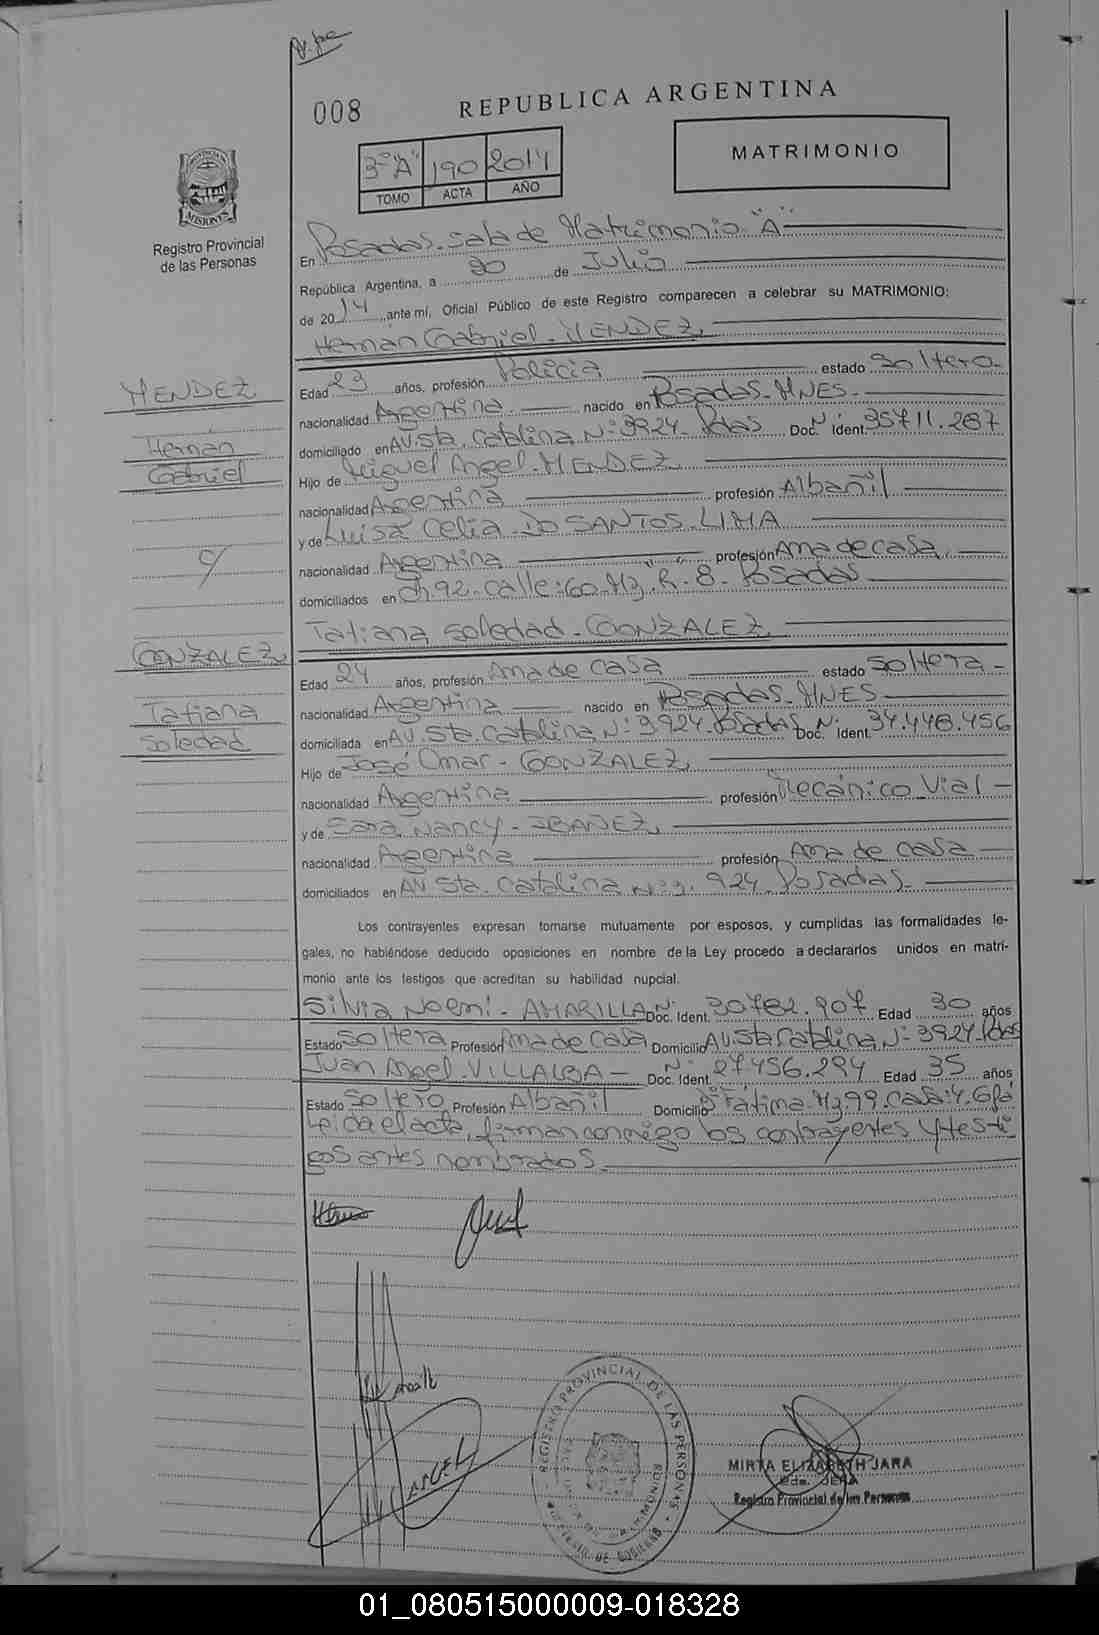 008
REPUBLICA ARGENTINA
3º "A" 190 2014
TOMO ACTA AÑO
MATRIMONIO
PROVINCIA DE
MISIONES
Registro Provincial
de las Personas
En Posadas. sala de Matrimonio "A"
República Argentina, a 20 de Julio
de 2014, ante mí, Oficial Público de este Registro comparecen a celebrar su MATRIMONIO:
Hernán Gabriel. MENDEZ,
MENDEZ
Hernán
Gabriel
c/
GONZALEZ
Tatiana
Soledad
Edad 23 años, profesión Policia estado Soltero
nacionalidad Argentina nacido en Posadas. MNES
domiciliado en AV. Sta. Catalina Nº 3924. Pdas Doc. Ident. Nº 35711.287
Hijo de Miguel Angel. MENDEZ
nacionalidad Argentina profesión Albañil
y de Luisa Celia DO SANTOS LIMA
nacionalidad Argentina profesión Ama de casa
domiciliados en Ch. 92. calle: 60. Mz. "R". 8. Posadas
Tatiana Soledad. GONZALEZ,
Edad 24 años, profesión Ama de casa estado Soltera
nacionalidad Argentina nacido en Posadas. MNES
domiciliada en AV. Sta. Catalina Nº 3924. Posadas Doc. Ident. Nº 34.448.456
Hijo de José Omar. GONZALEZ,
nacionalidad Argentina profesión Mecánico Vial
y de Sara Nancy. IBAÑEZ,
nacionalidad Argentina profesión Ama de casa
domiciliados en AV. Sta. Catalina Nº 3.924. Posadas
Los contrayentes expresan tomarse mutuamente por esposos, y cumplidas las formalidades le-
gales, no habiéndose deducido oposiciones en nombre de la Ley procedo a declararlos unidos en matri-
monio ante los testigos que acreditan su habilidad nupcial.
Silvia Noemí. AMARILLA Doc. Ident. Nº 30762.907 Edad 30 años
Estado Soltera Profesión Ama de casa Domicilio AV. Sta Catalina Nº 3924. Pdas
Juan Angel. VILLALBA Doc. Ident. Nº 27456.294 Edad 35 años
Estado Soltero Profesión Albañil Domicilio Bº Fátima. Mz. 99. Casa: 4. Gpá
Leída el acta, firman conmigo los contrayentes y testi
gos antes nombrados.
ANGEL
REGISTRO PROVINCIAL DE LAS PERSONAS
MINISTERIO DE GOBIERNO
MIRTA ELIZABETH JARA
JEFA
Registro Provincial de las Personas
01_080515000009-018328